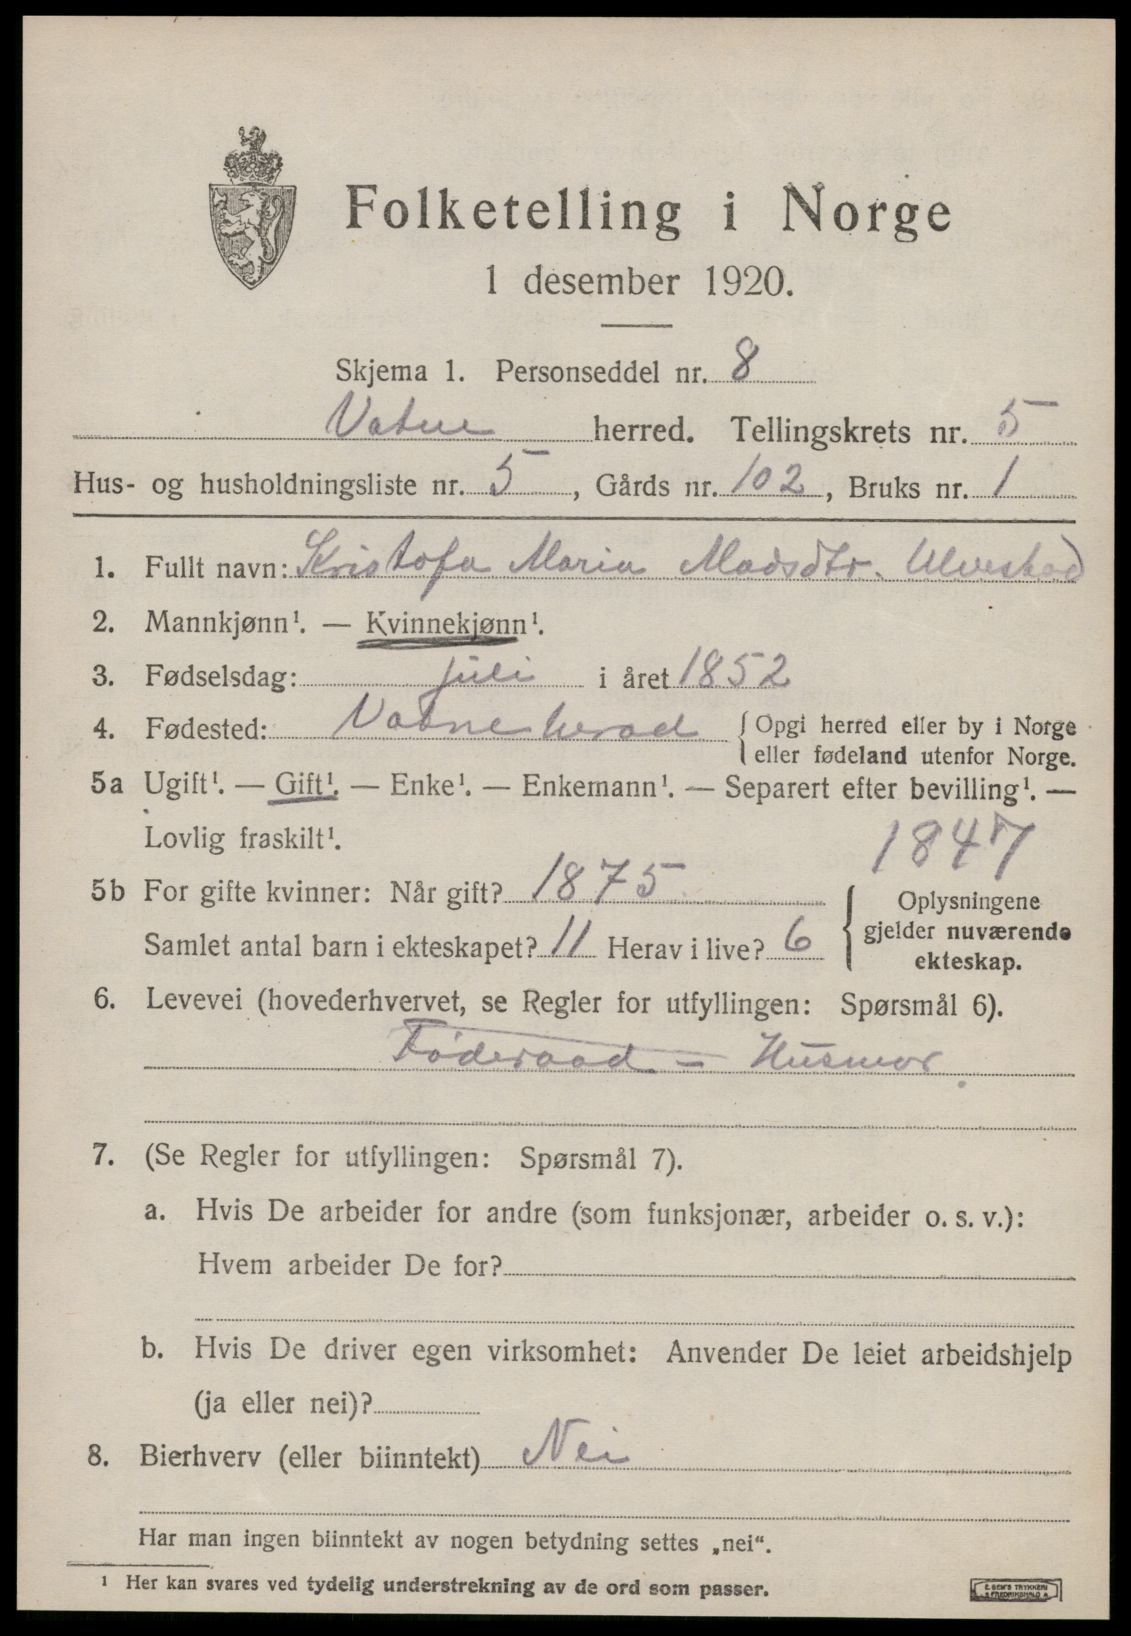 Folketelling i Norge
1 desember 1920.
Skjema 1. Personseddel nr. 8
Vatne herred. Tellingskrets nr. 5
Hus- og husholdningsliste nr. 5, Gårds nr. 102, Bruks nr. 1
1. Fullt navn: Kristofa Maria Madsdtr. Ulvestad
2. Mannkjønn¹. — Kvinnekjønn¹.
3. Fødselsdag: juli i året 1852
4. Fødested: Vatne herad { Opgi herred eller by i Norge
eller fødeland utenfor Norge.
5a Ugift¹. — Gift¹. — Enke¹. — Enkemann¹. — Separert efter bevilling¹. —
Lovlig fraskilt¹.
1847
5b For gifte kvinner: Når gift? 1875
Samlet antal barn i ekteskapet? 11 Herav i live? 6
{ Oplysningene
gjelder nuværende
ekteskap.
6. Levevei (hovederhvervet, se Regler for utfyllingen: Spørsmål 6).
Føderaad - Husmor.
7. (Se Regler for utfyllingen: Spørsmål 7).
a. Hvis De arbeider for andre (som funksjonær, arbeider o. s. v.):
Hvem arbeider De for?
b. Hvis De driver egen virksomhet: Anvender De leiet arbeidshjelp
(ja eller nei)?
8. Bierhverv (eller biinntekt) Nei
Har man ingen biinntekt av nogen betydning settes „nei“.
¹ Her kan svares ved tydelig understrekning av de ord som passer.
E. SEM'S TRYKKERI
FREDRIKSHALD